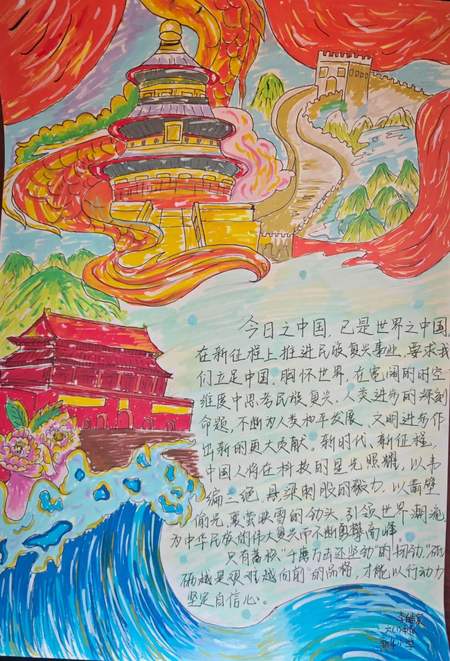 今日之中国，已是世界之中国
在新征程上推进民族复兴事业，要求我
们立足中国，胸怀世界，在宽阔的时空
维度中思考民族复兴、人类进步的深刻
命题，不断为人类和平发展、文明进步作
出新的更大贡献。新时代、新征程，
中国人将在科技的星光照耀，以韦
编三绝、悬梁刺股的毅力，以凿壁
偷光、囊萤映雪的劲头，引领世界潮流
为中华民族的伟大复兴而不断勇攀高峰，
只有蓄积"千磨万击还坚劲"的韧劲，砥
砺越是艰难越向前的品格，才能以行动力
坚定自信心。